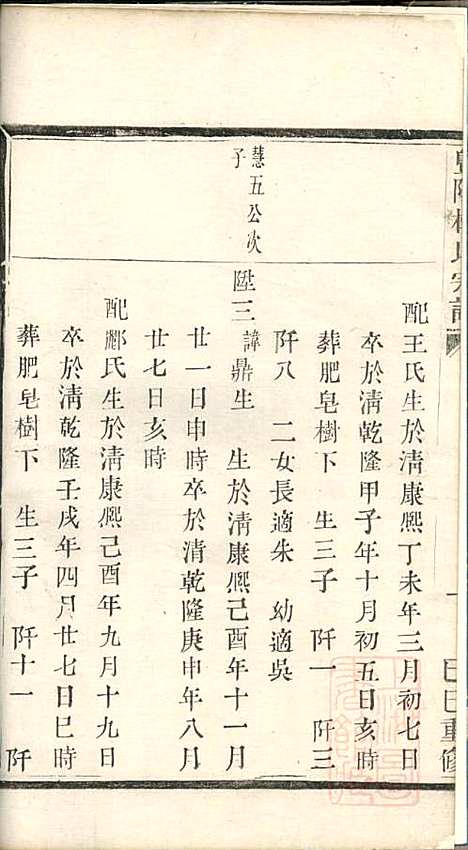 氏宗譜
己巳重修
配王氏生於清康熈丁未年三月初七日
卒於清乾隆甲子年十月初五日亥時
葬肥皂樹下 生三子 阡一 阡三
阡八 二女長適朱 幼適吳
慧五公次
子
陞三諱鼎生 生於清康熈己酉年十一月
廿一日申時卒於清乾隆庚申年八月
廿七日亥時
配酈氏生於清康熈己酉年九月十九日
卒於清乾隆壬戌年四月廿七日巳時
葬肥皂樹下 生三子 阡十一 阡